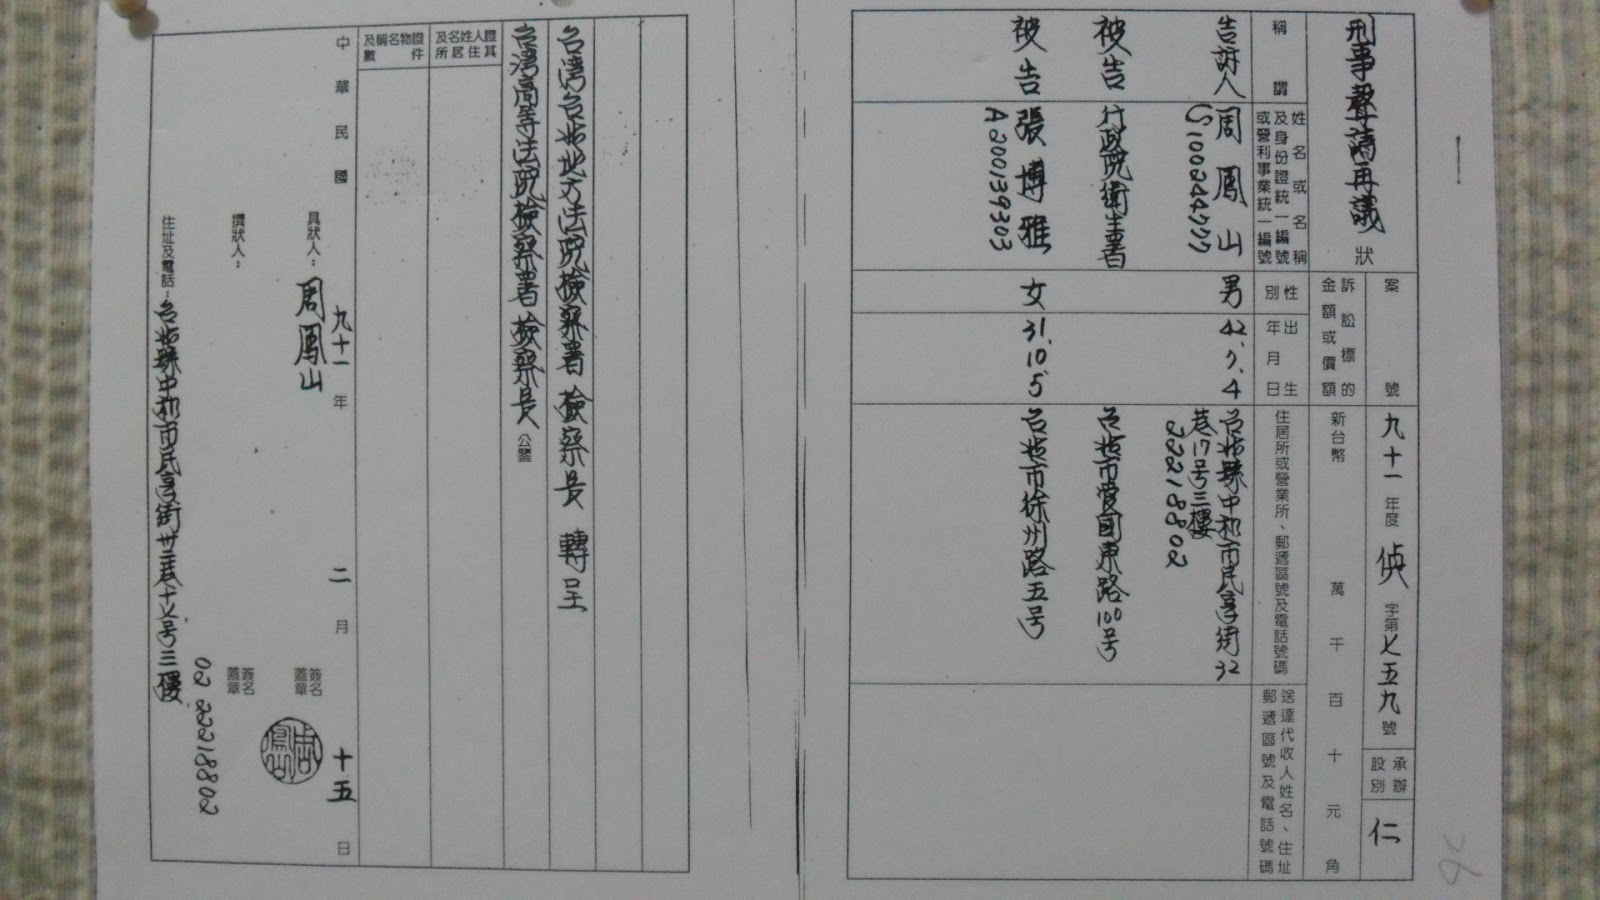 刑事聲請再議 狀
案號 九十一 年度 偵 字第 七五九 號 承辦股別 仁
訴訟標的金額或價額 新台幣 萬 千 百 十 元 角
稱謂
姓名或名稱及身份證統一編號或營利事業統一編號
性別
出生年月日
住居所或營業所、郵遞區號及電話號碼
送達代收人姓名、住址郵遞區號及電話號碼
告訴人 周鳳山 男 42.7.4 台北縣中和市民享街32
S100244777 巷17号三樓
22218802
被告 行政院衛生署 台北市愛国東路100号
被告 張博雅 女 31.10.5 台北市徐州路五号
A200139303
台灣台北地方法院檢察署 檢察長 轉呈
台灣高等法院檢察署 檢察長 公鑒
證人姓名及其住居所
證物名稱及件數
中華民國 九十一 年 二 月 十五 日
具狀人：周鳳山 簽名蓋章
撰狀人： 簽名蓋章
住址及電話：台北縣中和市民享街卅二巷十七号三樓
02 22218802